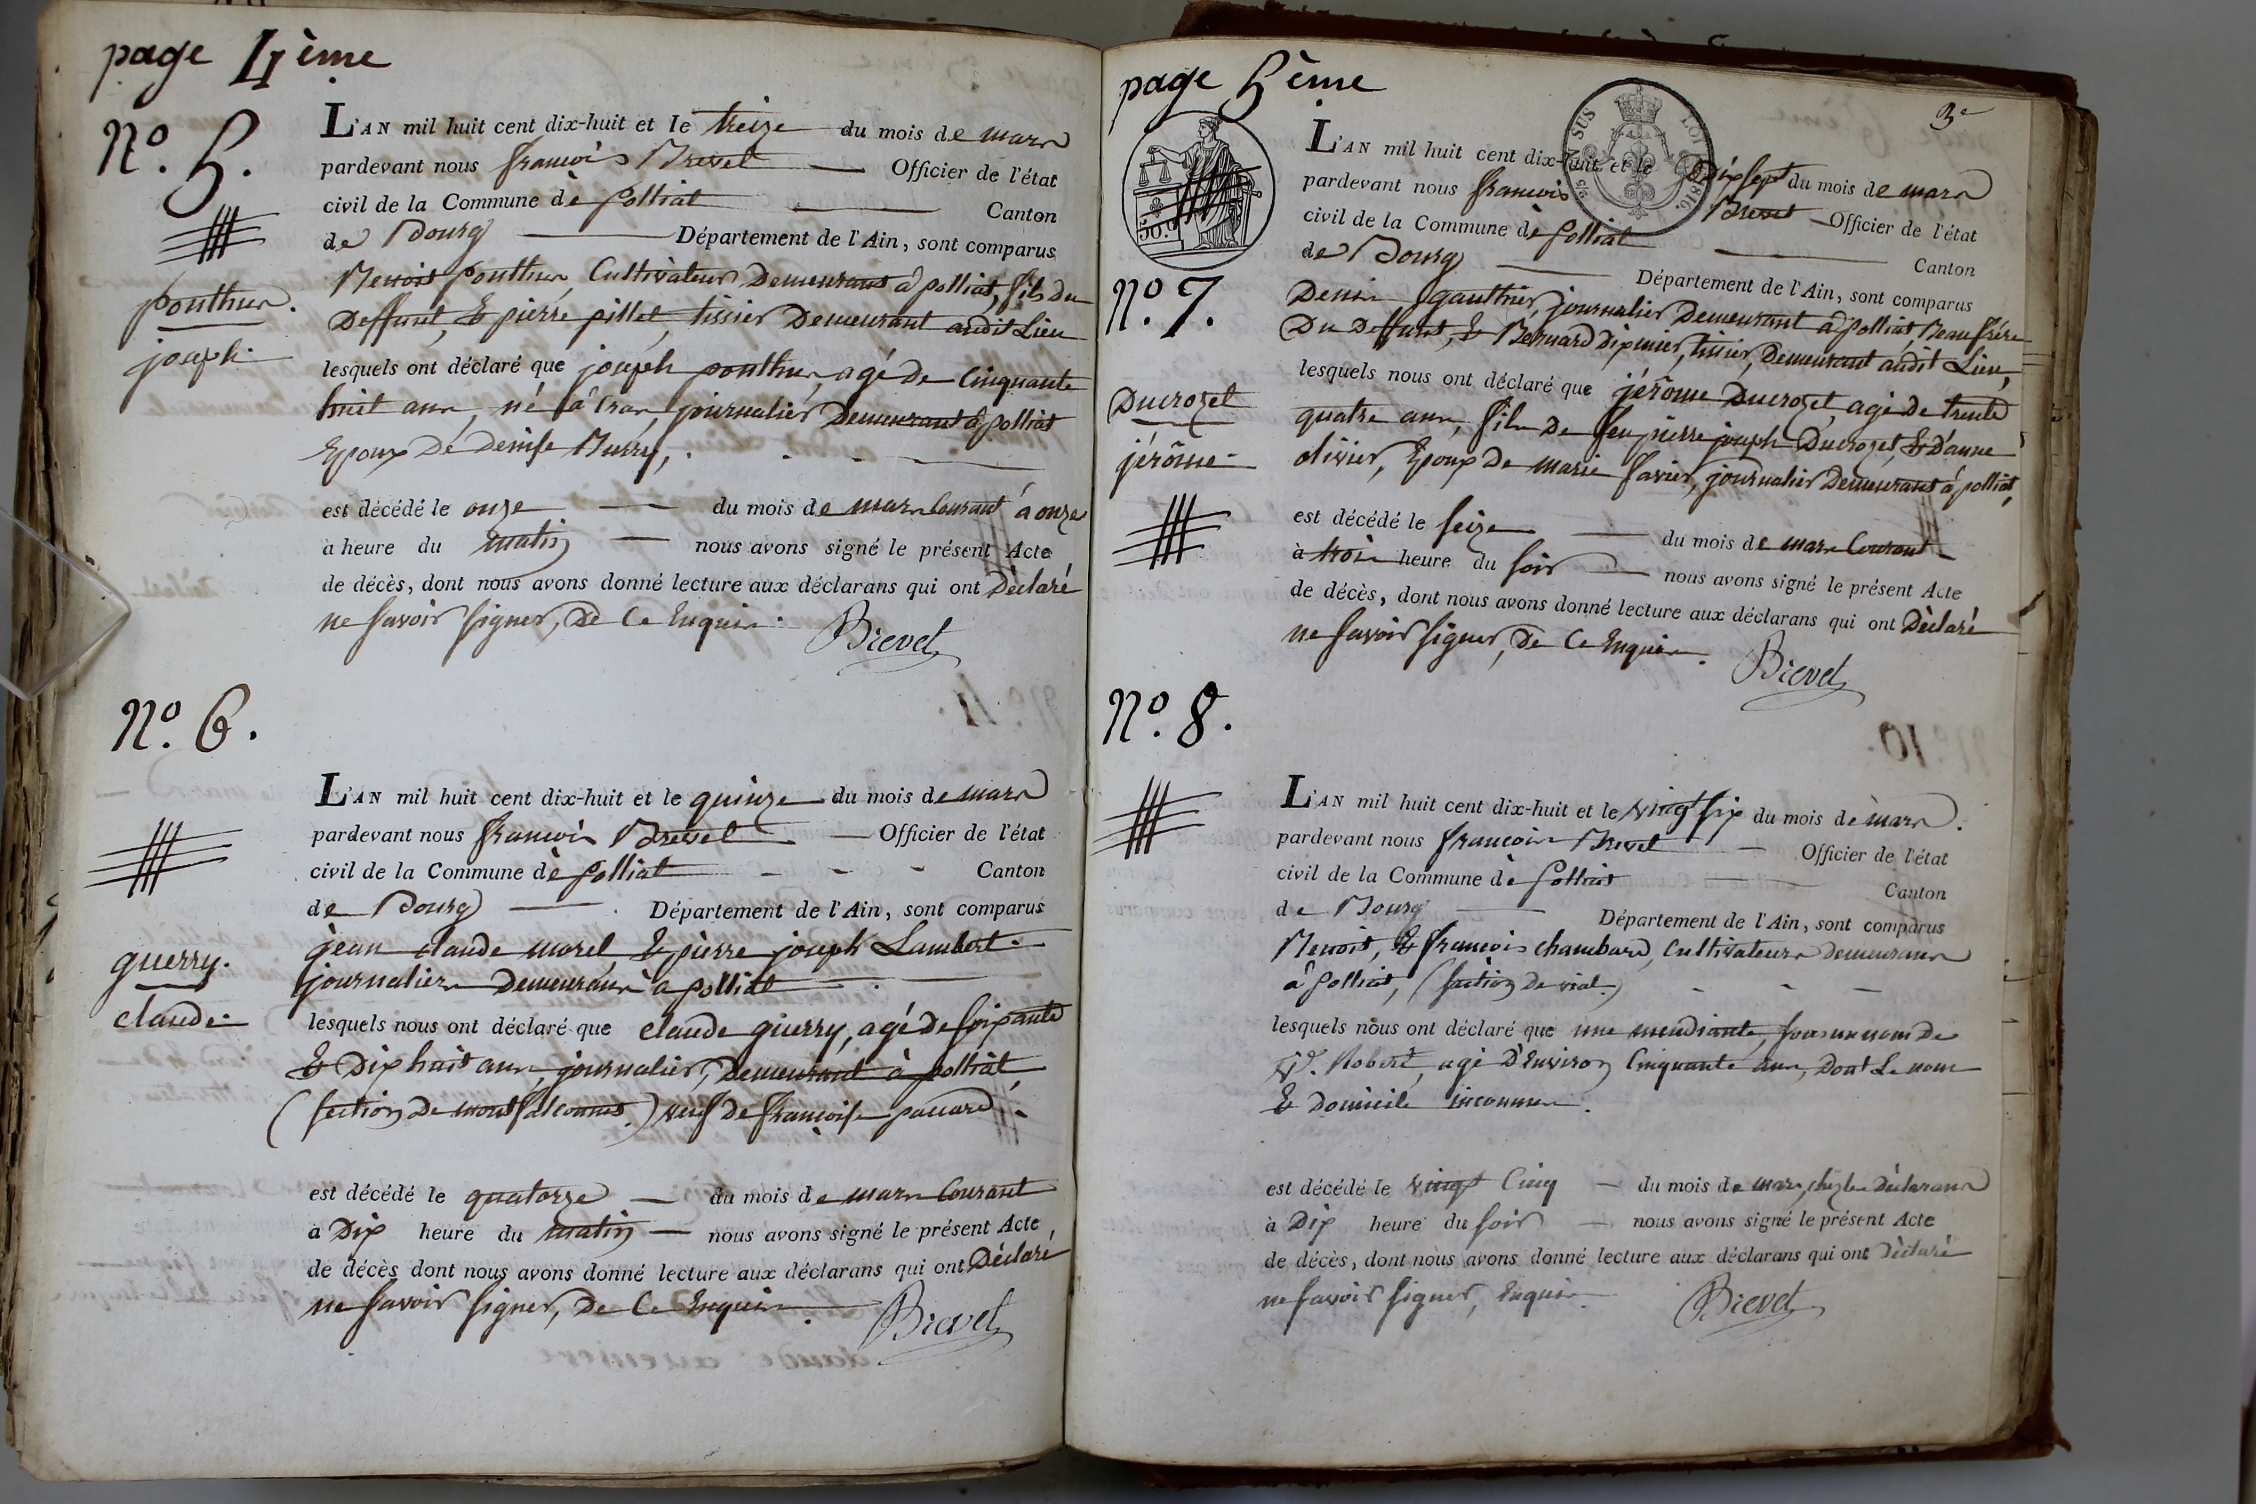 page 4ème
N.º 5.
ponthus.
joseph.
L'AN mil huit cent dix-huit et le treize du mois de mars
pardevant nous françois Brevet Officier de l'état
civil de la Commune dè polliat Canton
de Bourg Département de l'Ain, sont comparus
Benoit ponthus, Cultivateur Demeurant à polliat, fils du
Deffunt, & pierre pillet, tissier Demeurant audit Lieu
lesquels ont déclaré que joseph ponthus, agé de Cinquante
huit ans, né à Cras, journalier Demeurant à polliat
Epoux De Denise
est décédé le onze du mois de mars Courant à onze
à heure du matin nous avons signé le présent Acte
de décès, dont nous avons donné lecture aux déclarans qui ont Déclaré
ne savoir signer, De Ce Enquis. Brevet
N.º 6.
guerry.
claude.
L'AN mil huit cent dix-huit et le quinze du mois de mars
pardevant nous françois Brevet Officier de l'état
civil de la Commune dè polliat Canton
de Bourg Département de l'Ain, sont comparus
jean claude morel, & pierre joseph Lambert
journaliers Demeurans à polliat
lesquels nous ont déclaré que claude guerry, agé de soixante
& Dix huit ans, journalier, Demeurant à polliat,
(section De montfalconnet.) veuf de françoise pauard.
est décédé le quatorze du mois de mars Courant
à Dix heure du matin nous avons signé le présent Acte
de décès dont nous avons donné lecture aux déclarans qui ont Déclaré
ne savoir signer, De Ce Enquis. Brevet
page 5ème
3e
50.c
N.º 7.
Ducrozet
jérôme
L'AN mil huit cent dix-huit et le Dix sept du mois de mars
pardevant nous françois Brevet Officier de l'état
civil de la Commune dè polliat Canton
de Bourg Département de l'Ain, sont comparus
Denis gauthier, journalier Demeurant à polliat, Beau frère
Du Deffunt, & Bernard Dipinier, tissier, Demeurant audit Lieu,
lesquels nous ont déclaré que jérôme Ducrozet, agé de trente
quatre ans, fils De feu pierre joseph Ducrozet, & D'anne
olivier, Epoux De marie favier, journalier Demeurant à polliat,
est décédé le seize du mois de mars Courant
à trois heure du soir nous avons signé le présent Acte
de décès, dont nous avons donné lecture aux déclarans qui ont Déclaré
ne savoir signer, De Ce Enquis. Brevet
N.º 8.
L'AN mil huit cent dix-huit et le vingt six du mois dè mars.
pardevant nous françois Brevet Officier de l'état
civil de la Commune dè polliat Canton
de Bourg Département de l'Ain, sont comparus
Benoit, & françois chambard, Cultivateurs demeurans
à polliat, (section De vial.)
lesquels nous ont déclaré que une mendiante, sous un nom De
Vᵉ. Robert, agé D'Environ Cinquante ans, Dont Le nom
& Domicile inconnus.
est décédé le vingt Cinq du mois de mars, chez les Déclarans
à Dix heure du soir nous avons signé le présent Acte
de décès, dont nous avons donné lecture aux déclarans qui ont Déclaré
ne savoir signer, Enquis. Brevet